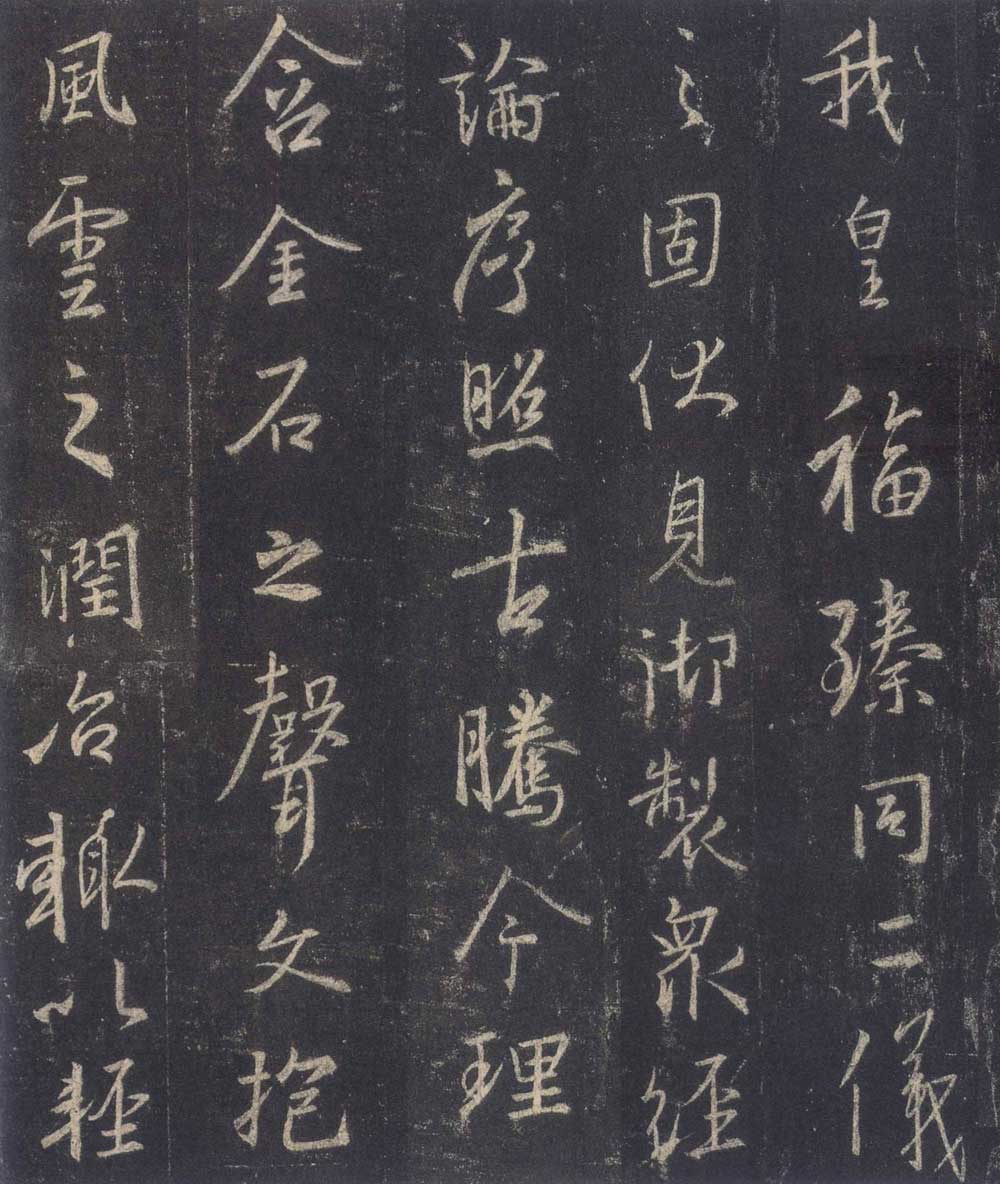 我皇福臻同二儀
之固伏見御製眾經
論序照古騰今理
含金石之聲文抱
風雲之潤治輒以輕